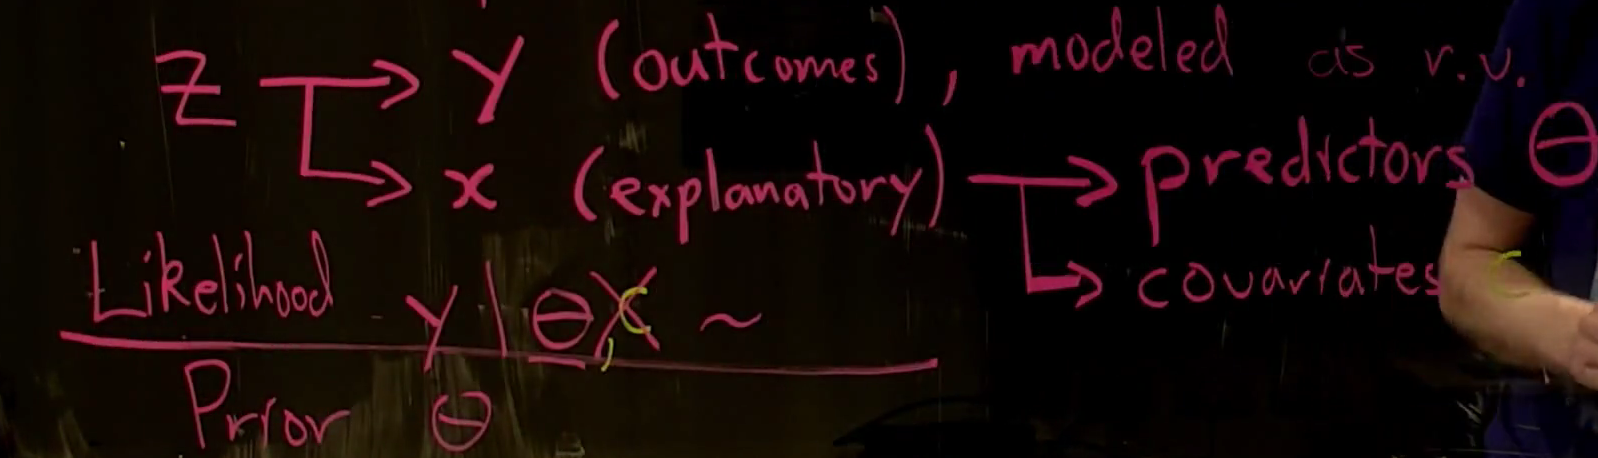 Z → Y (outcomes), modeled as r.v.
→ x (explanatory) → predictors θ
→ covariates C
Likelihood y | θ, C ~
Prior θ